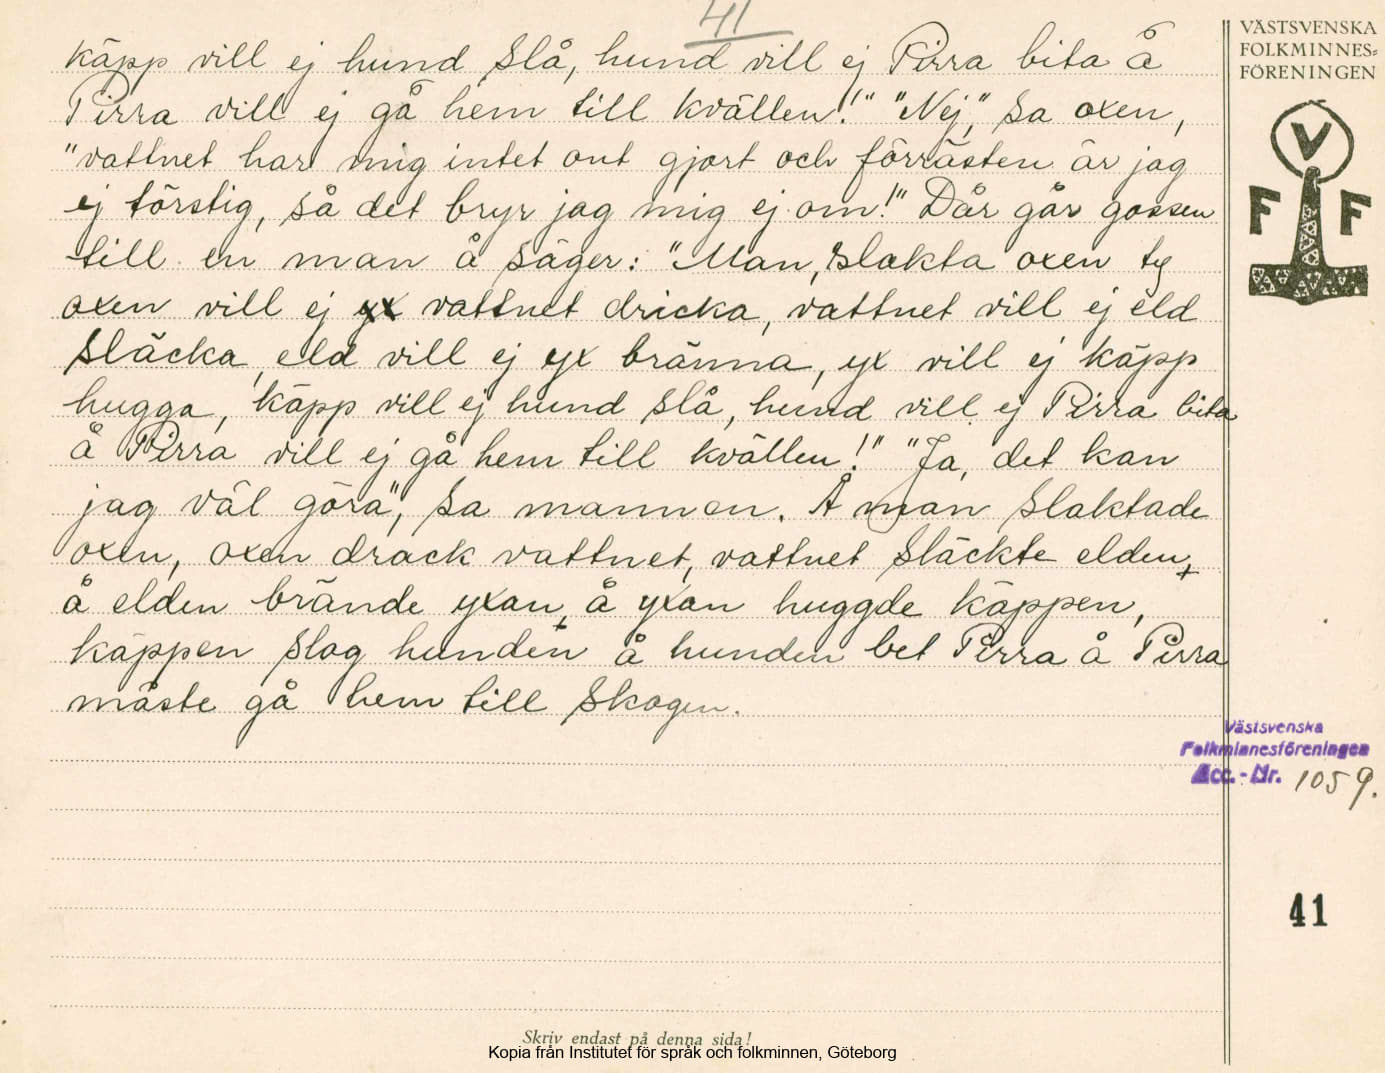 41
VÄSTSVENSKA
FOLKMINNES=
FÖRENINGEN
V
F F
käpp vill ej hund slå, hund vill ej Pirra bita å
Pirra vill ej gå hem till kvällen!" "Nej," sa oxen,
"vattnet har mig intet ont gjort och förrästen är jag
ej törstig, så det bryr jag mig ej om!" Där går gossen
till en man å säger: "Man, slakta oxen ty
oxen vill ej vattnet dricka, vattnet vill ej eld
släcka, eld vill ej yx bränna, yx vill ej käpp
hugga, käpp vill ej hund slå, hund vill ej Pirra bita
å Pirra vill ej gå hem till kvällen!" "Ja, det kan
jag väl göra", sa mannen. Å man slaktade
oxen, oxen drack vattnet, vattnet släckte elden,
å elden brände yxan, å yxan huggde käppen,
käppen slog hunden å hunden bet Pirra å Pirra
måste gå hem till skogen.
Västsvenska
Folkminnesföreningen
Acc.-Nr. 1059.
41
Skriv endast på denna sida!
Kopia från Institutet för språk och folkminnen, Göteborg